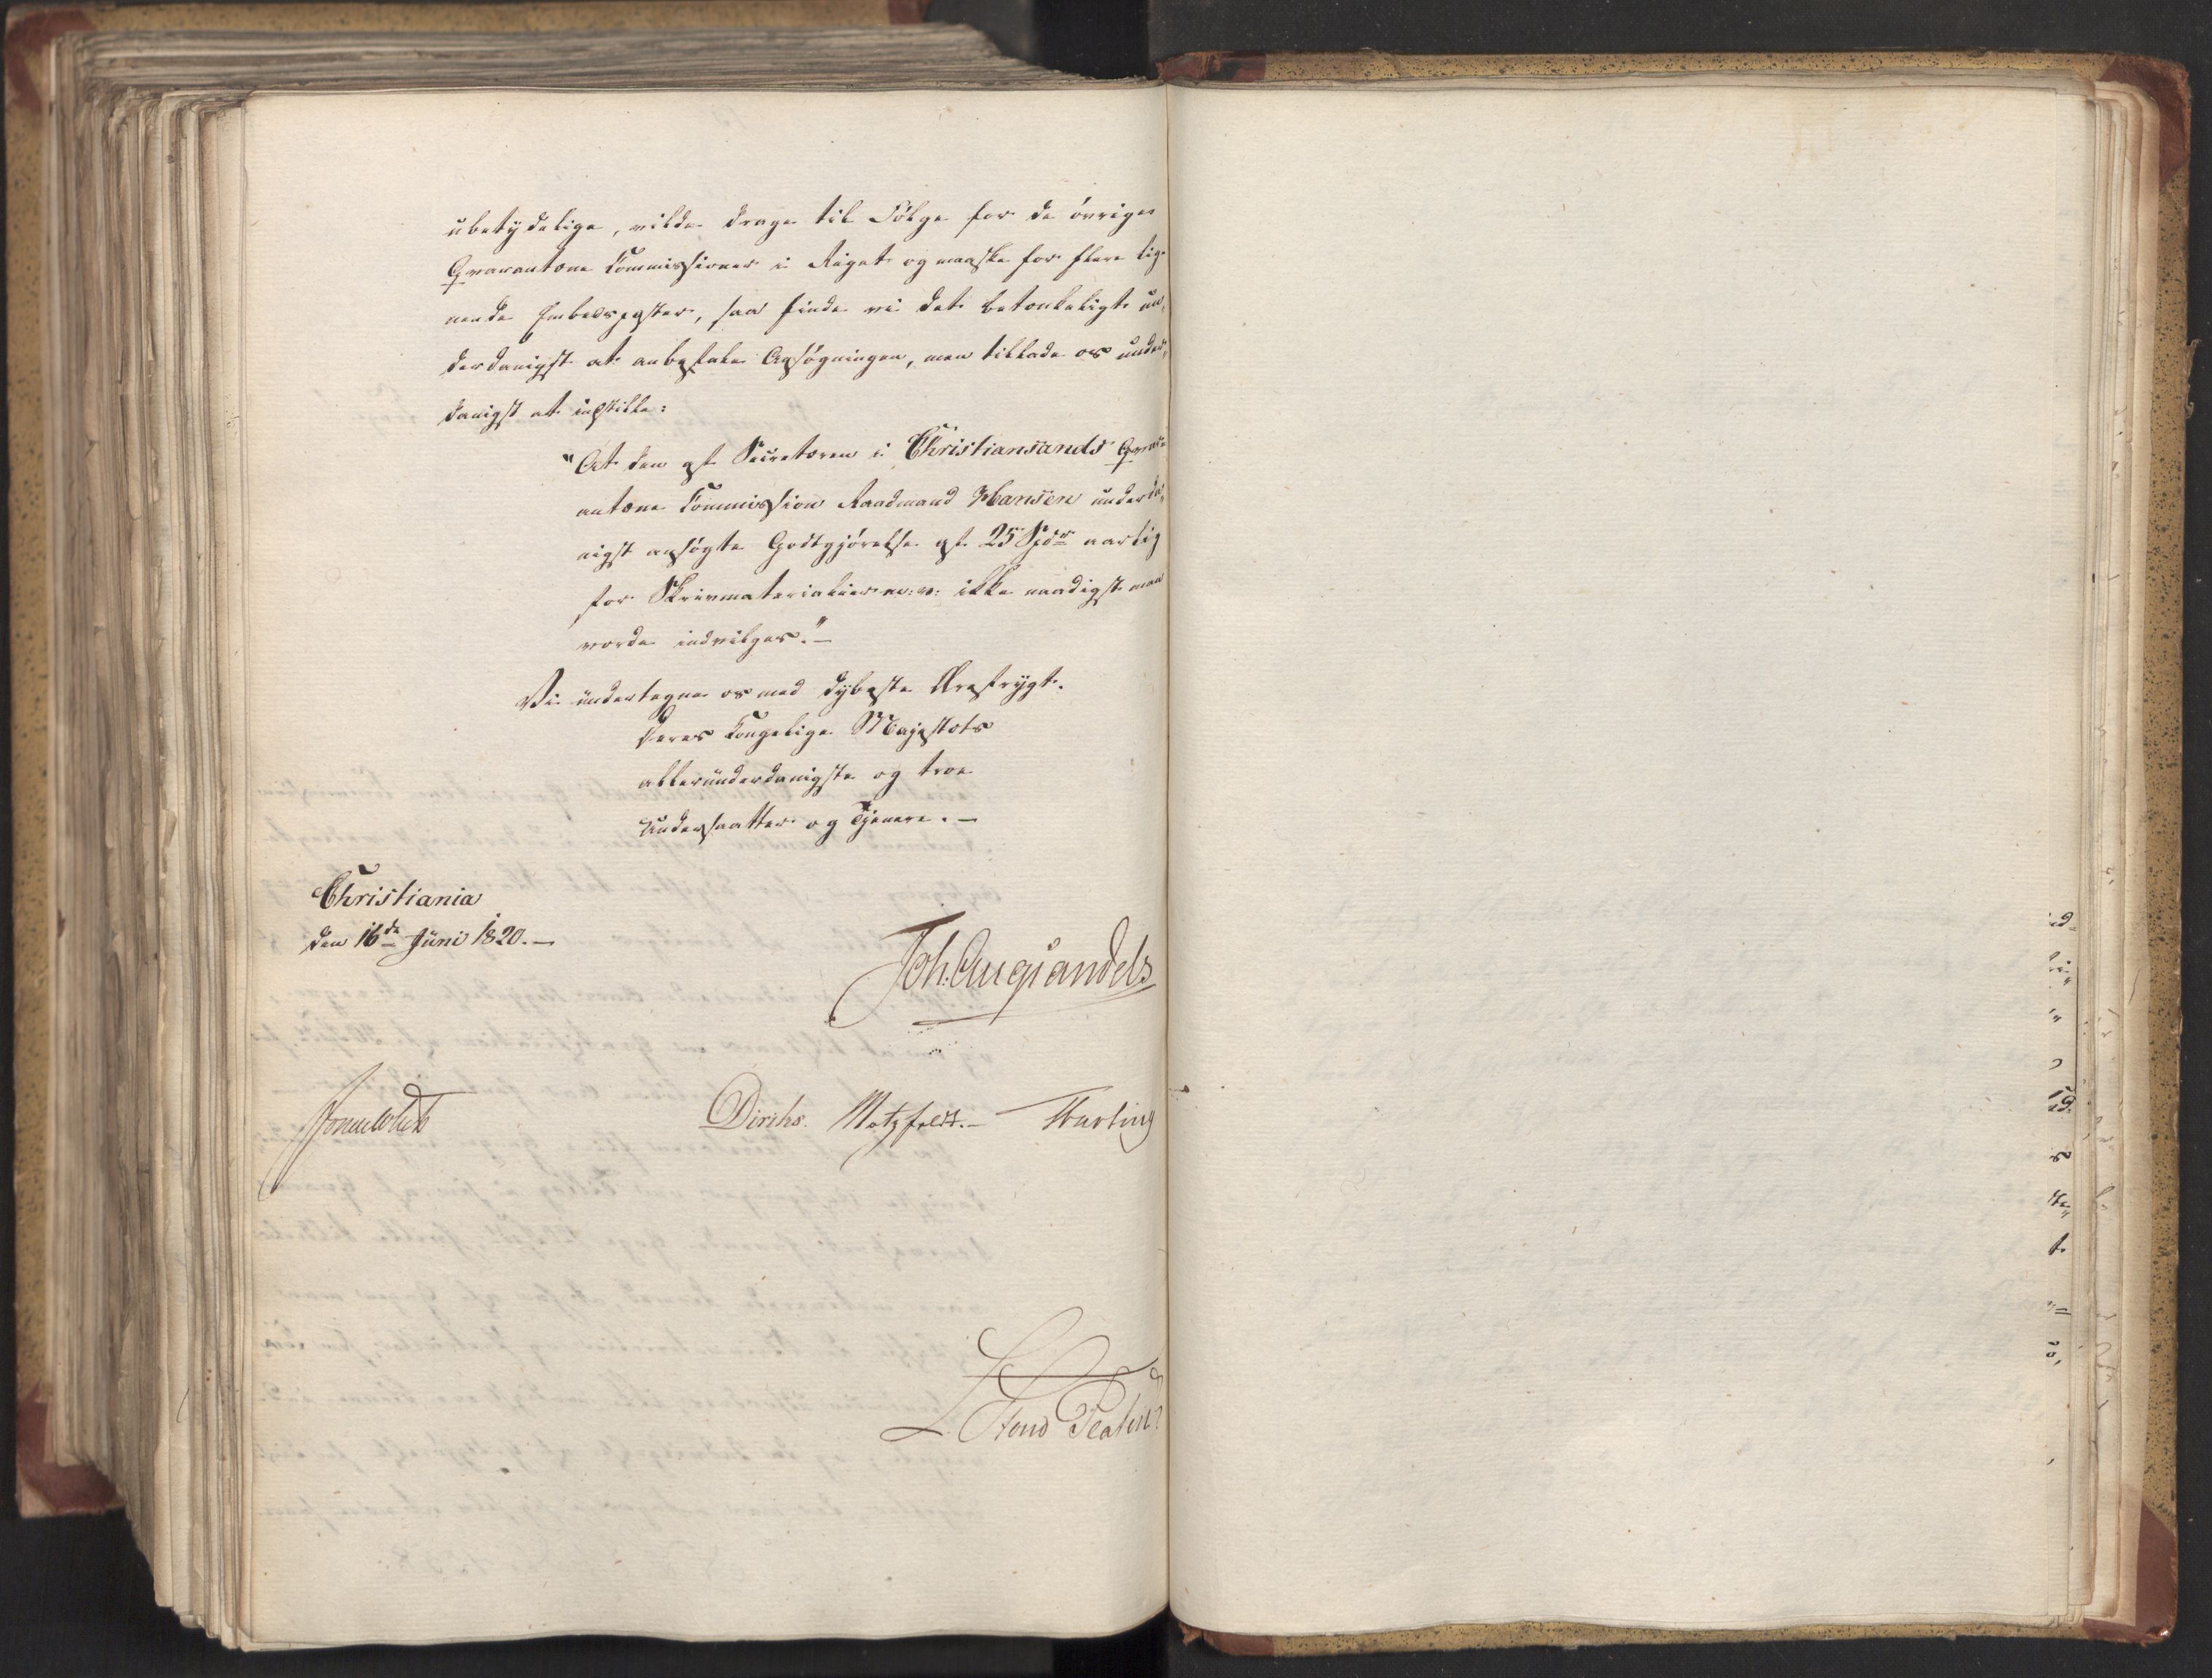 ubetydelige, vilde drage til Følge for de øvrige
Qvarantæne Commissioner i Riget og maaskee for flere lig¬
nende Embedsposter, saa finde vi det betænkeligt un„
derdanigst at anbefale Ansøgningen, men tillade os under„
danigst at indstille:
"At den af Secretæren i Christiansands Qvar¬
antæne Commission Raadmand Hansen underda„
nigst ansøgte Godtgjørelse af 25 Spdr aarlig
for Skrivmaterialier m: v: ikke naadigst maa
vorde indvilget."—
Vi undertegne os med dybeste Ærefrygt.
Deres Kongelige Majestæts
allerunderdanigste og troe
Undersaatter og Tjenere.—
Christiania
den 16de Juni 1820.—
Joh. Aug. Sandels
Sommerhielm Diriks. Motzfeldt.— Fasting